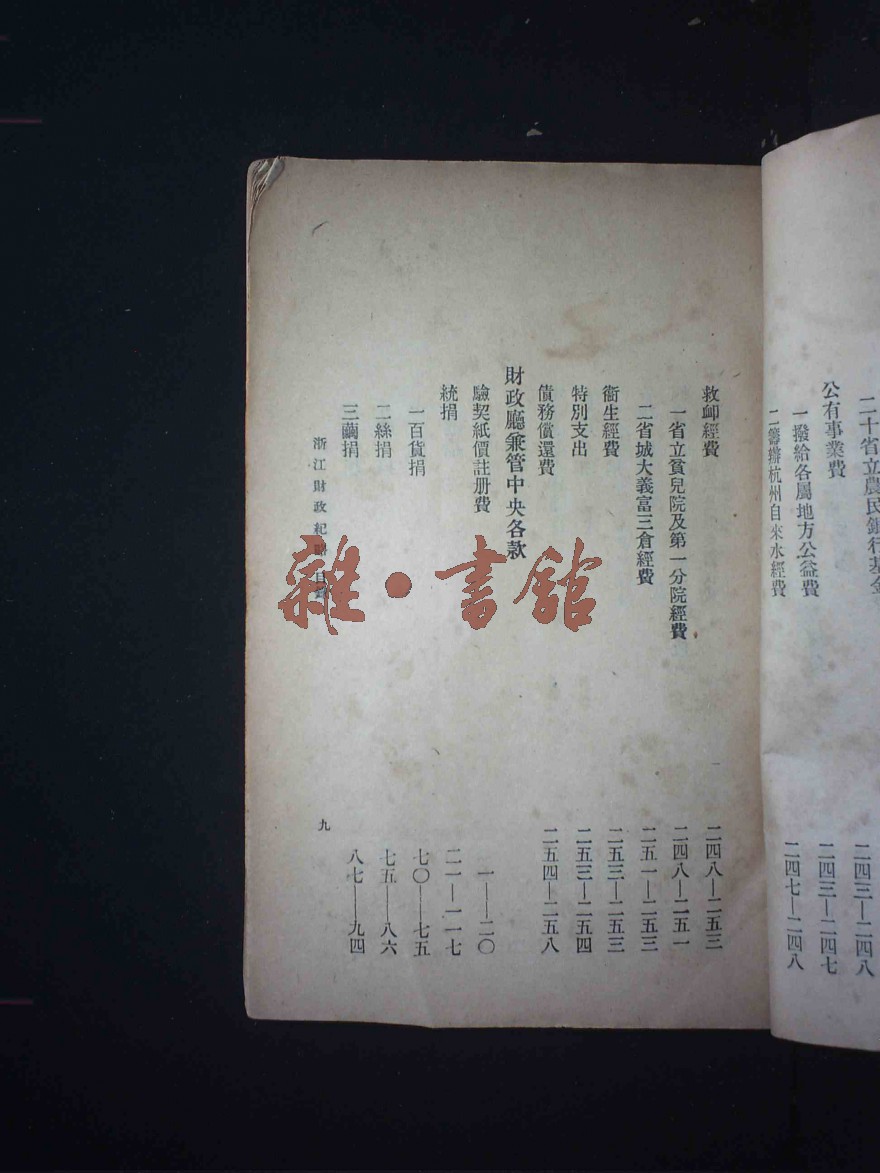 二十省立農民銀行基金
二四三—二四八
公有事業費
二四三—二四七
一撥給各屬地方公益費
二四七—二四八
二籌辦杭州自來水經費
救卹經費
二四八—二五三
一省立貧兒院及第一分院經費
二四八—二五一
二省城大義富三倉經費
二五一—二五三
衞生經費
二五三—二五三
特別支出
二五三—二五四
債務償還費
二五四—二五八
財政廳兼管中央各款
驗契紙價註册費
一—二〇
統捐
二一—一一七
一百貨捐
七〇—七五
二絲捐
七五—八六
三繭捐
八七—九四
浙江財政紀略 目錄
九
雜·書館